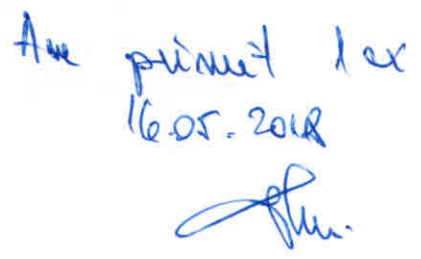 Am primit 1 ex
16.05.2018